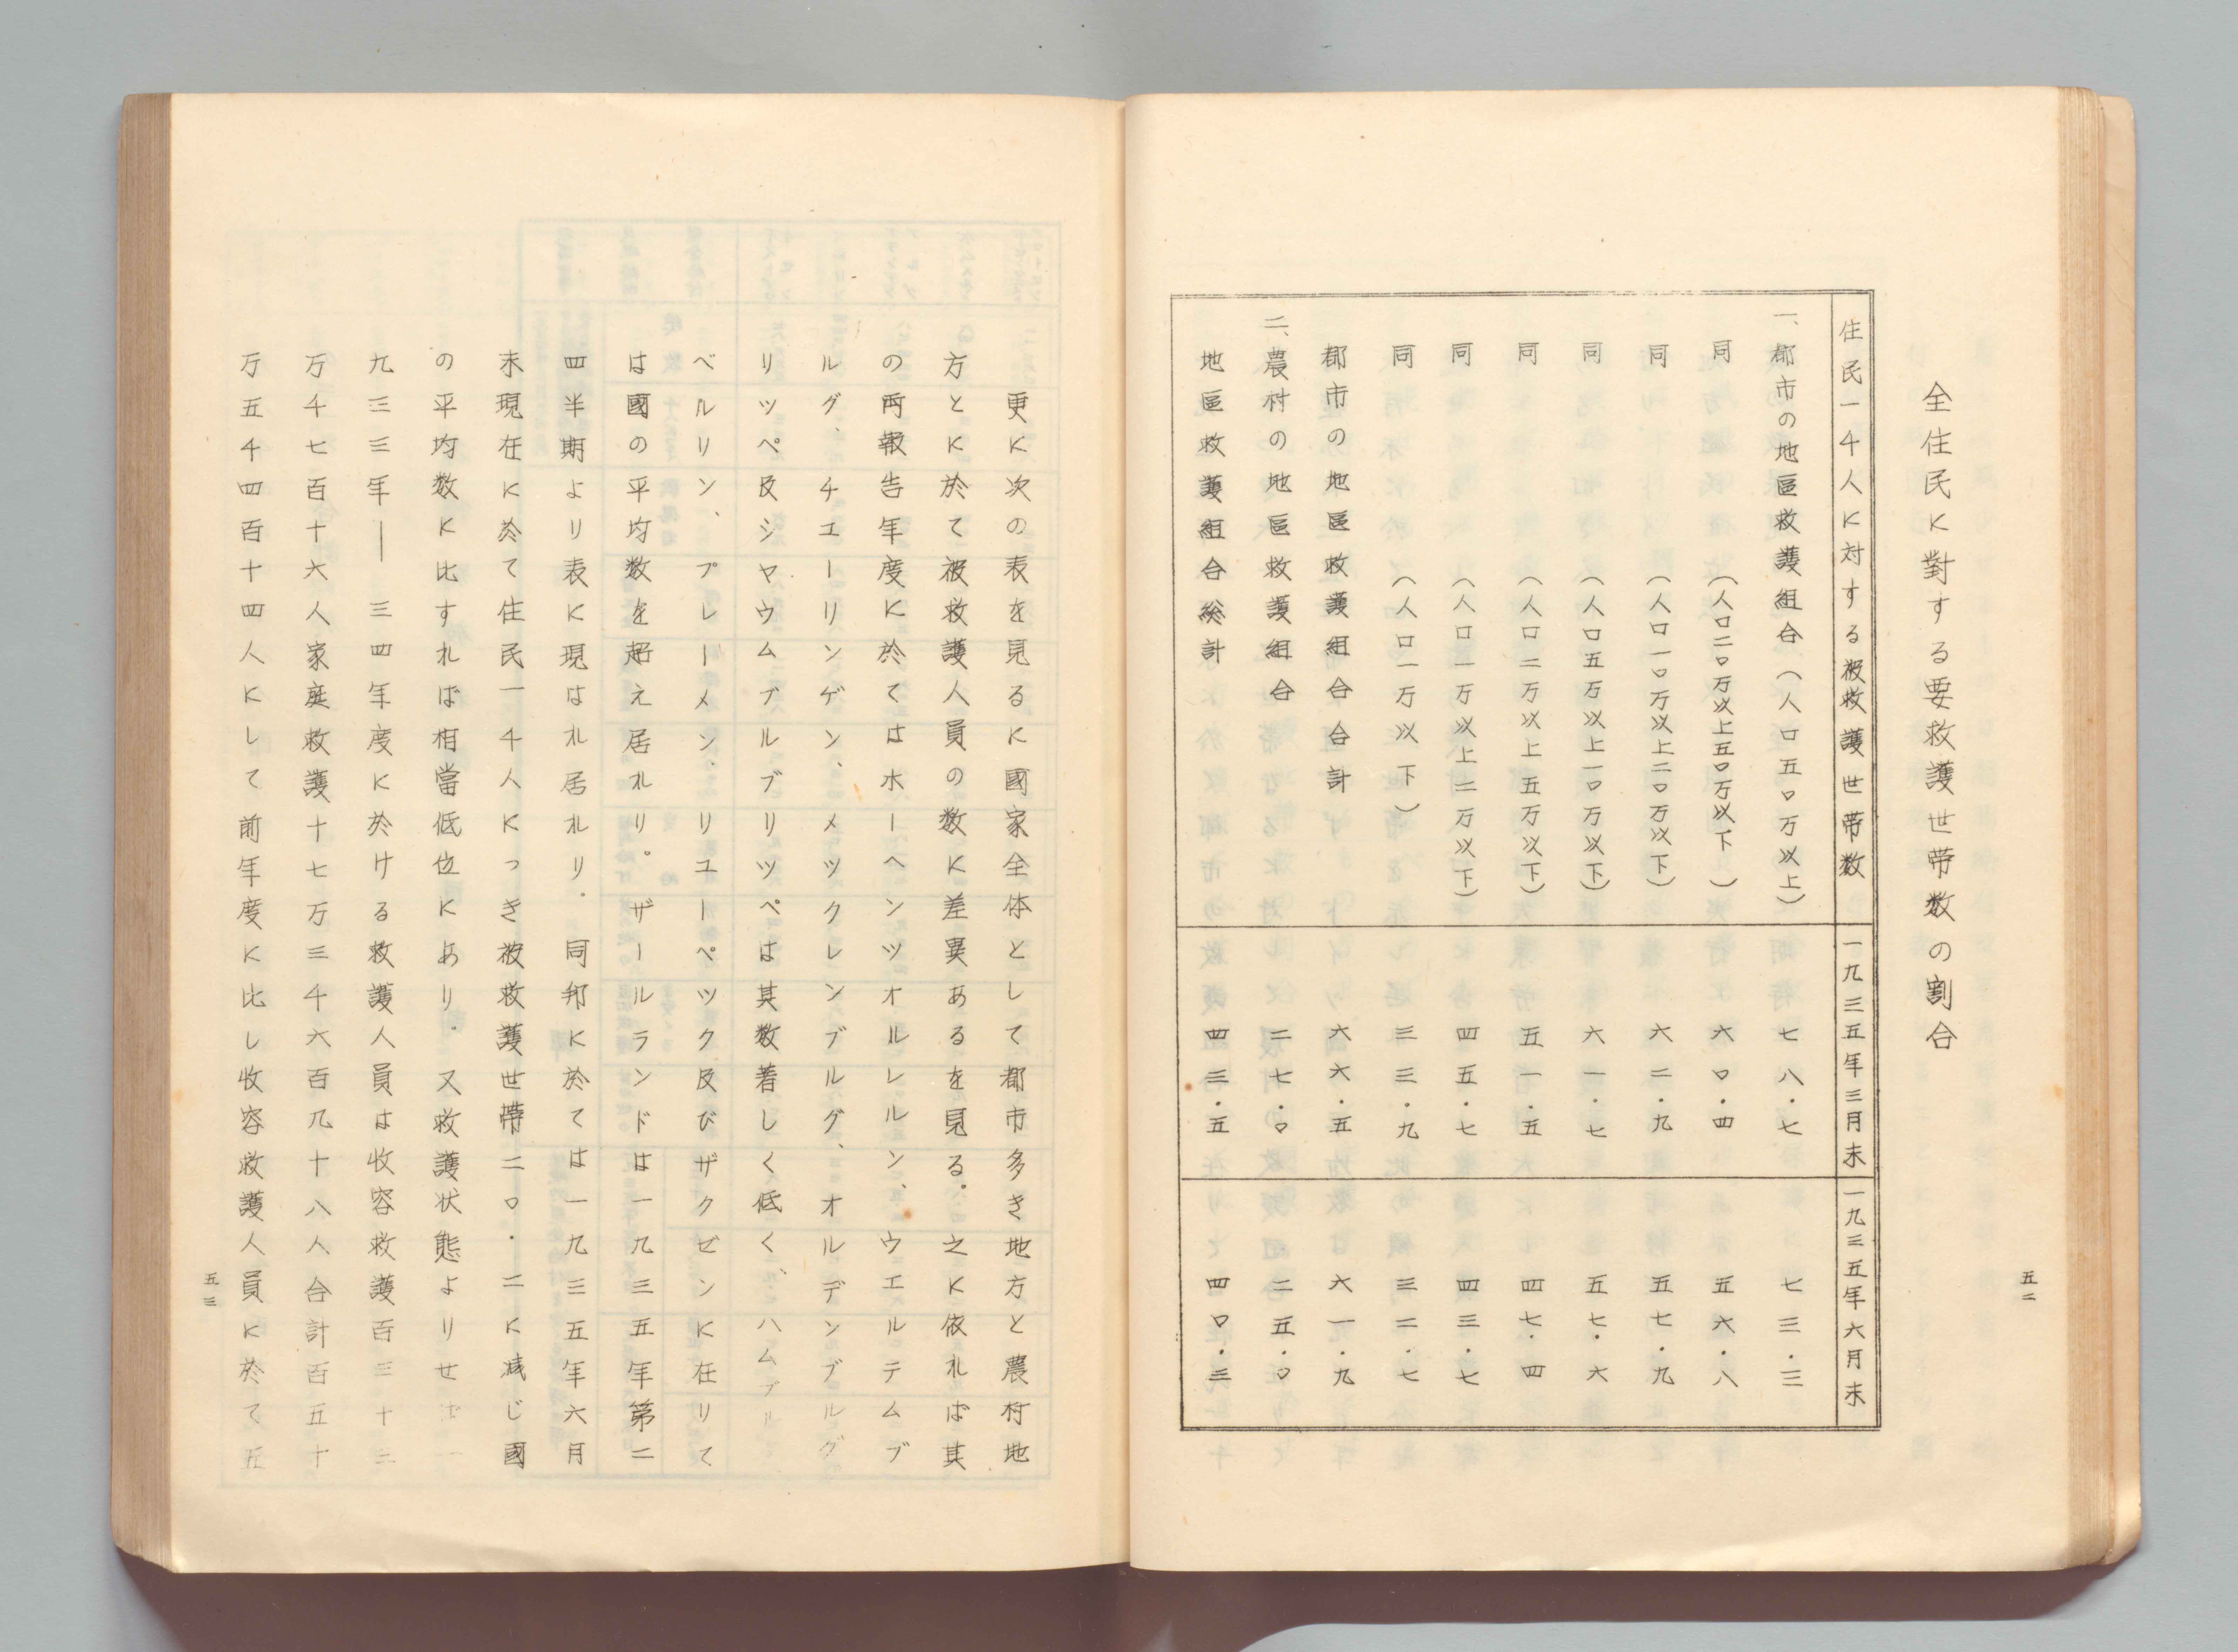 全住民に對する要救護世帯数の割合
住民一千人に対する被救護世帯数 一九三五年三月末 一九三五年六月末
一、都市の地區救護組合（人口五〇万以上） 七八・七 七三・三
同 （人口二〇万以上五〇万以下） 六〇・四 五六・八
同 （人口一〇万以上二〇万以下） 六二・九 五七・九
同 （人口五万以上一〇万以下） 六一・七 五七・六
同 （人口二万以上五万以下） 五一・五 四七・四
同 （人口一万以上二万以下） 四五・七 四三・七
同 （人口一万以下） 三三・九 三二・七
都市の地區救護組合合計 六六・五 六一・九
二、農村の地區救護組合 二七・〇 二五・〇
地區救護組合総計 四三・五 四〇・三
五二
更に次の表を見るに國家全体として都市多き地方と農村地
方とに於て被救護人員の数に差異あるを見る。之に依れば其
の両報告年度に於てはホーヘンツオルレルン、ウエルテムブ
ルグ、チエーリンゲン、メツクレンブルグ、オルデンブルグ
リツペ及シヤウムブルブリツペは其数著しく低く、ハムブル
ベルリン、プレーメン、リユーベツク及びザクゼンに在りて
は國の平均数を超え居れり。ザールランドは一九三五年第二
四半期より表に現はれ居れり。同邦に於ては一九三五年六月
末現在に於て住民一千人につき被救護世帯二〇・二に減じ國
の平均数に比すれば相當低位にあり。又救護状態よりせば一
九三三年―三四年度に於ける救護人員は收容救護百三十三
万千七百十六人家庭救護十七万三千六百九十八人合計百五十
万五千四百十四人にして前年度に比し收容救護人員に於て五
五三